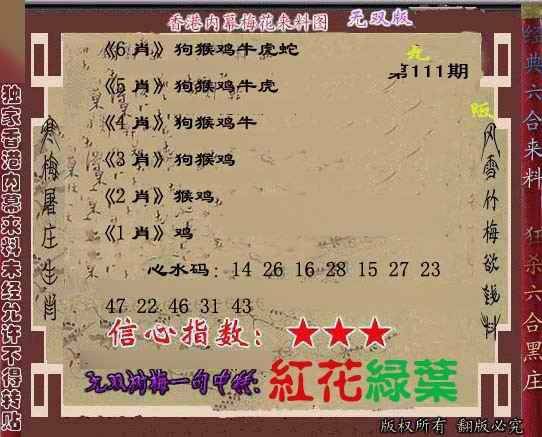 香港内幕梅花来料图 无双版
《6 肖》狗猴鸡牛虎蛇
第111期
《5 肖》狗猴鸡牛虎
《4 肖》狗猴鸡牛
《3 肖》狗猴鸡
《2 肖》猴鸡
《1 肖》鸡
心水码: 14 26 16 28 15 27 23
47 22 46 31 43
信心指数: ★★★
无双 梅一句中特:
紅花綠葉
版权所有 翻版必究
独家香港内幕来料未经允许不得转贴
寒梅屠庄生肖
风雪竹梅欲钱料
经典六合来料
狂杀六合黑庄